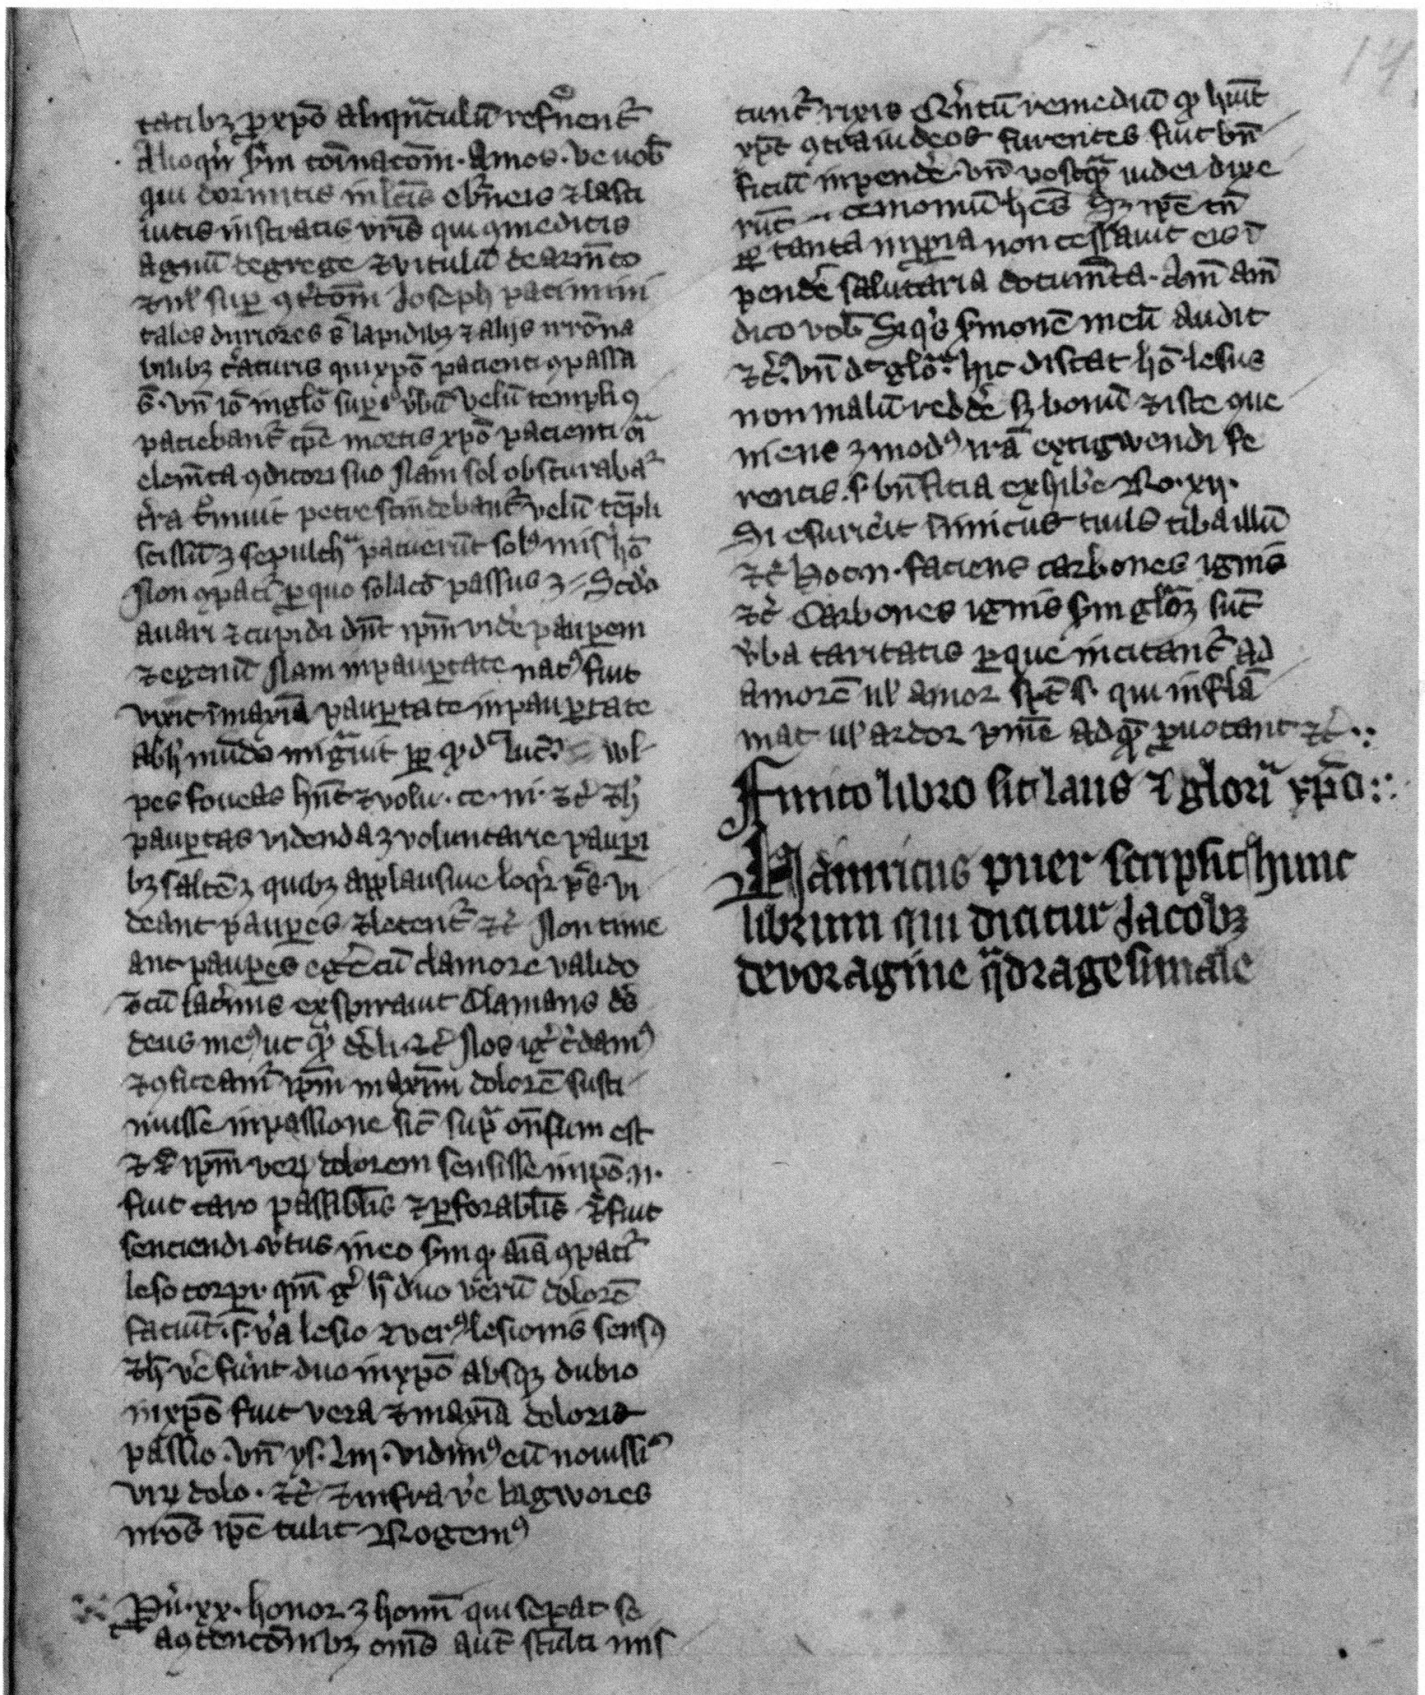 tatibꝫ ꝑ xp̄o aliqn̄tulū refrenent᷑
Alioqn̄ s̄m cōinatōm · Amos · ve uob̄
qui dormitis in lc̄is eb̄neis ⁊ lasci
iutis in stratis vr̄is qui ꝯmeditis
agnū de grege ⁊ vitulū de arm̄to
Joseph pacimini
tales duriores s̄ lapidibꝫ ⁊ alijs irrōna
bilibꝫ c̄aturis qui xp̄o pacienti ꝯpassa
s̄ · vn̄ iō in glō suꝑ v̄bū velū templi ꝯ
patiebant᷑ tp̄e mortis xp̄o pacienti oīa
elem̄ta ꝯditori suo Nam sol obscurabat᷑
t̄ra t̄muit petre scindebant᷑ velū tēpli
scissū ꝫ sepulch patuerūt solꝰ mis᷑ hō
Non ꝯpatit᷑ ꝑ quo solo passus ꝫ Scd̄o
auari ⁊ cupidi dn̄t ip̄m vide᷑ pauꝑem
⁊ egenū Nam in pauꝑtate natꝰ fuit
vixit ī maxīa pauꝑtate in pauꝑtate
ab h̄ mūdo mig̃uit luc̄ wl
pes foueas hn̄t ⁊ volu · ce · ni · ⁊c̄ ⁊ h̄
pauꝑtas videnda ꝫ voluntarie pauꝑi
bꝫ saltē ꝫ quibꝫ applausiue loqr̄ p̄s · vi
deant pauꝑes ⁊ letent᷑ ⁊c̄ Non time
ant pauꝑes eg̃ cū clamore valido
⁊ cū lac̄mis exspirauit Clamans d̄s
deus meꝰ ut qͥ d̄eli · ⁊c̄ Nos ig᷑ c̄damꝰ
⁊ ꝯfiteam᷑ ip̄m maxīm dolorē susti
nuisse in passione sic̄ sup̃ on̄sum est
⁊ ip̄m verꝫ dolorem sensisse in xp̄o n̄ ·
fuit caro passibl̄is ⁊ ꝑforabl̄is ⁊ fuit
senciendi v̄tus in eo s̄m ꝙ aīa ꝯpatit᷑
leso corpi · qm̄ g᷑ h̄ duo verū dolorē
faciūt · s · v̄a lesio ⁊ verꝰ lesionis sensꝰ
⁊ h̄ ve᷑ fūnt duo in xp̄o absqꝫ dubio
in xp̄o fuit vera ⁊ maxīa doloris
passio · vn̄ ys · liij · vidimꝰ eū nouissīꝰ
virꝫ dolo · ⁊c̄ ⁊ infra ve᷑ lagwores
nr̄os ip̄e tulit Rogemꝰ
Pu᷑ · xx · honor ꝫ homī qui seꝑat se
a ꝯtencōnibꝫ om̄s aut̄ stulti mis
cunt᷑ rixis Qr̄tū remediū ꝙ hūit
xp̄c ꝯtra iudeos furentes fuit bn̄
ficiū inpende᷑ · vn̄ postq̃ iudei dixe
rūt demoniū hēs Sꝫ xp̄c tn̄
ꝑ tanta inꝓpia non cessauit eis ī
pende᷑ salutaria docum̄ta · Am̄ am̄
dico vob̄ Si qͥs s̄monē meū audit
⁊c̄ · vn̄ dc̄ glō · hic distat hō · lesus
non malū redde᷑ sꝫ bonū ⁊ iste ꝯue
niens ꝫ modꝰ irā extigwendi fe
rentis · s · bn̄ficia exhibe᷑ Ro · xij ·
Si esurie᷑it inimicus tuus ciba illū
⁊c̄ hoc n̄ · faciens carbones ignis
⁊c̄ Carbones ignis s̄m glōꝫ sūt
v̄ba caritatis ꝑ que incitant᷑ ad
amorē ul̄ amor sp̄c s · qui inflā
mat ul̄ ardor ad ꝙ ꝓuocant ⁊c̄ ·:
Finito libro sit laus ⁊ glori xp̄o :·
Hainricus puer scripsit hunc
librum qui dicitur Jacobꝫ
de voragine q̃dragesimale